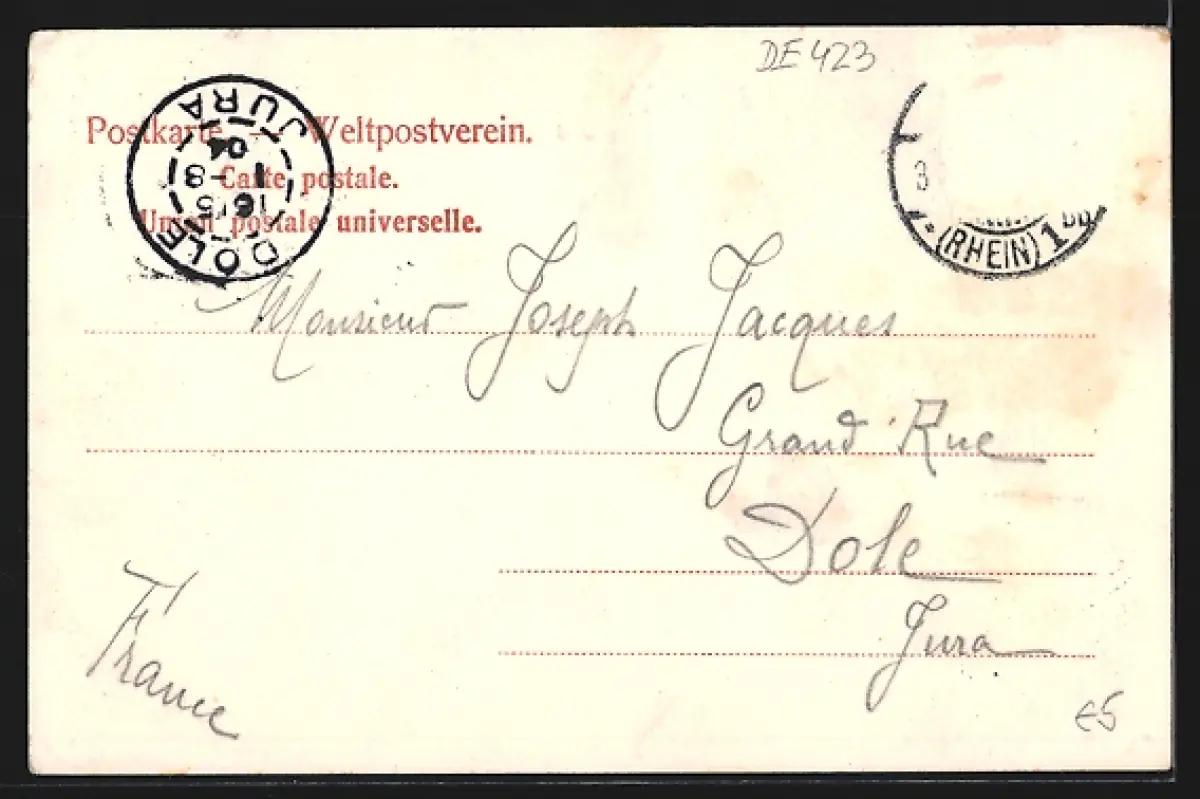 DE 423
Postkarte — Weltpostverein.
Carte postale.
Union postale universelle.
DOLE
16/15
1 -8
04
JURA
3
(RHEIN) 1
Monsieur Joseph Jacques
Grand Rue
Dole
Jura
France
€5